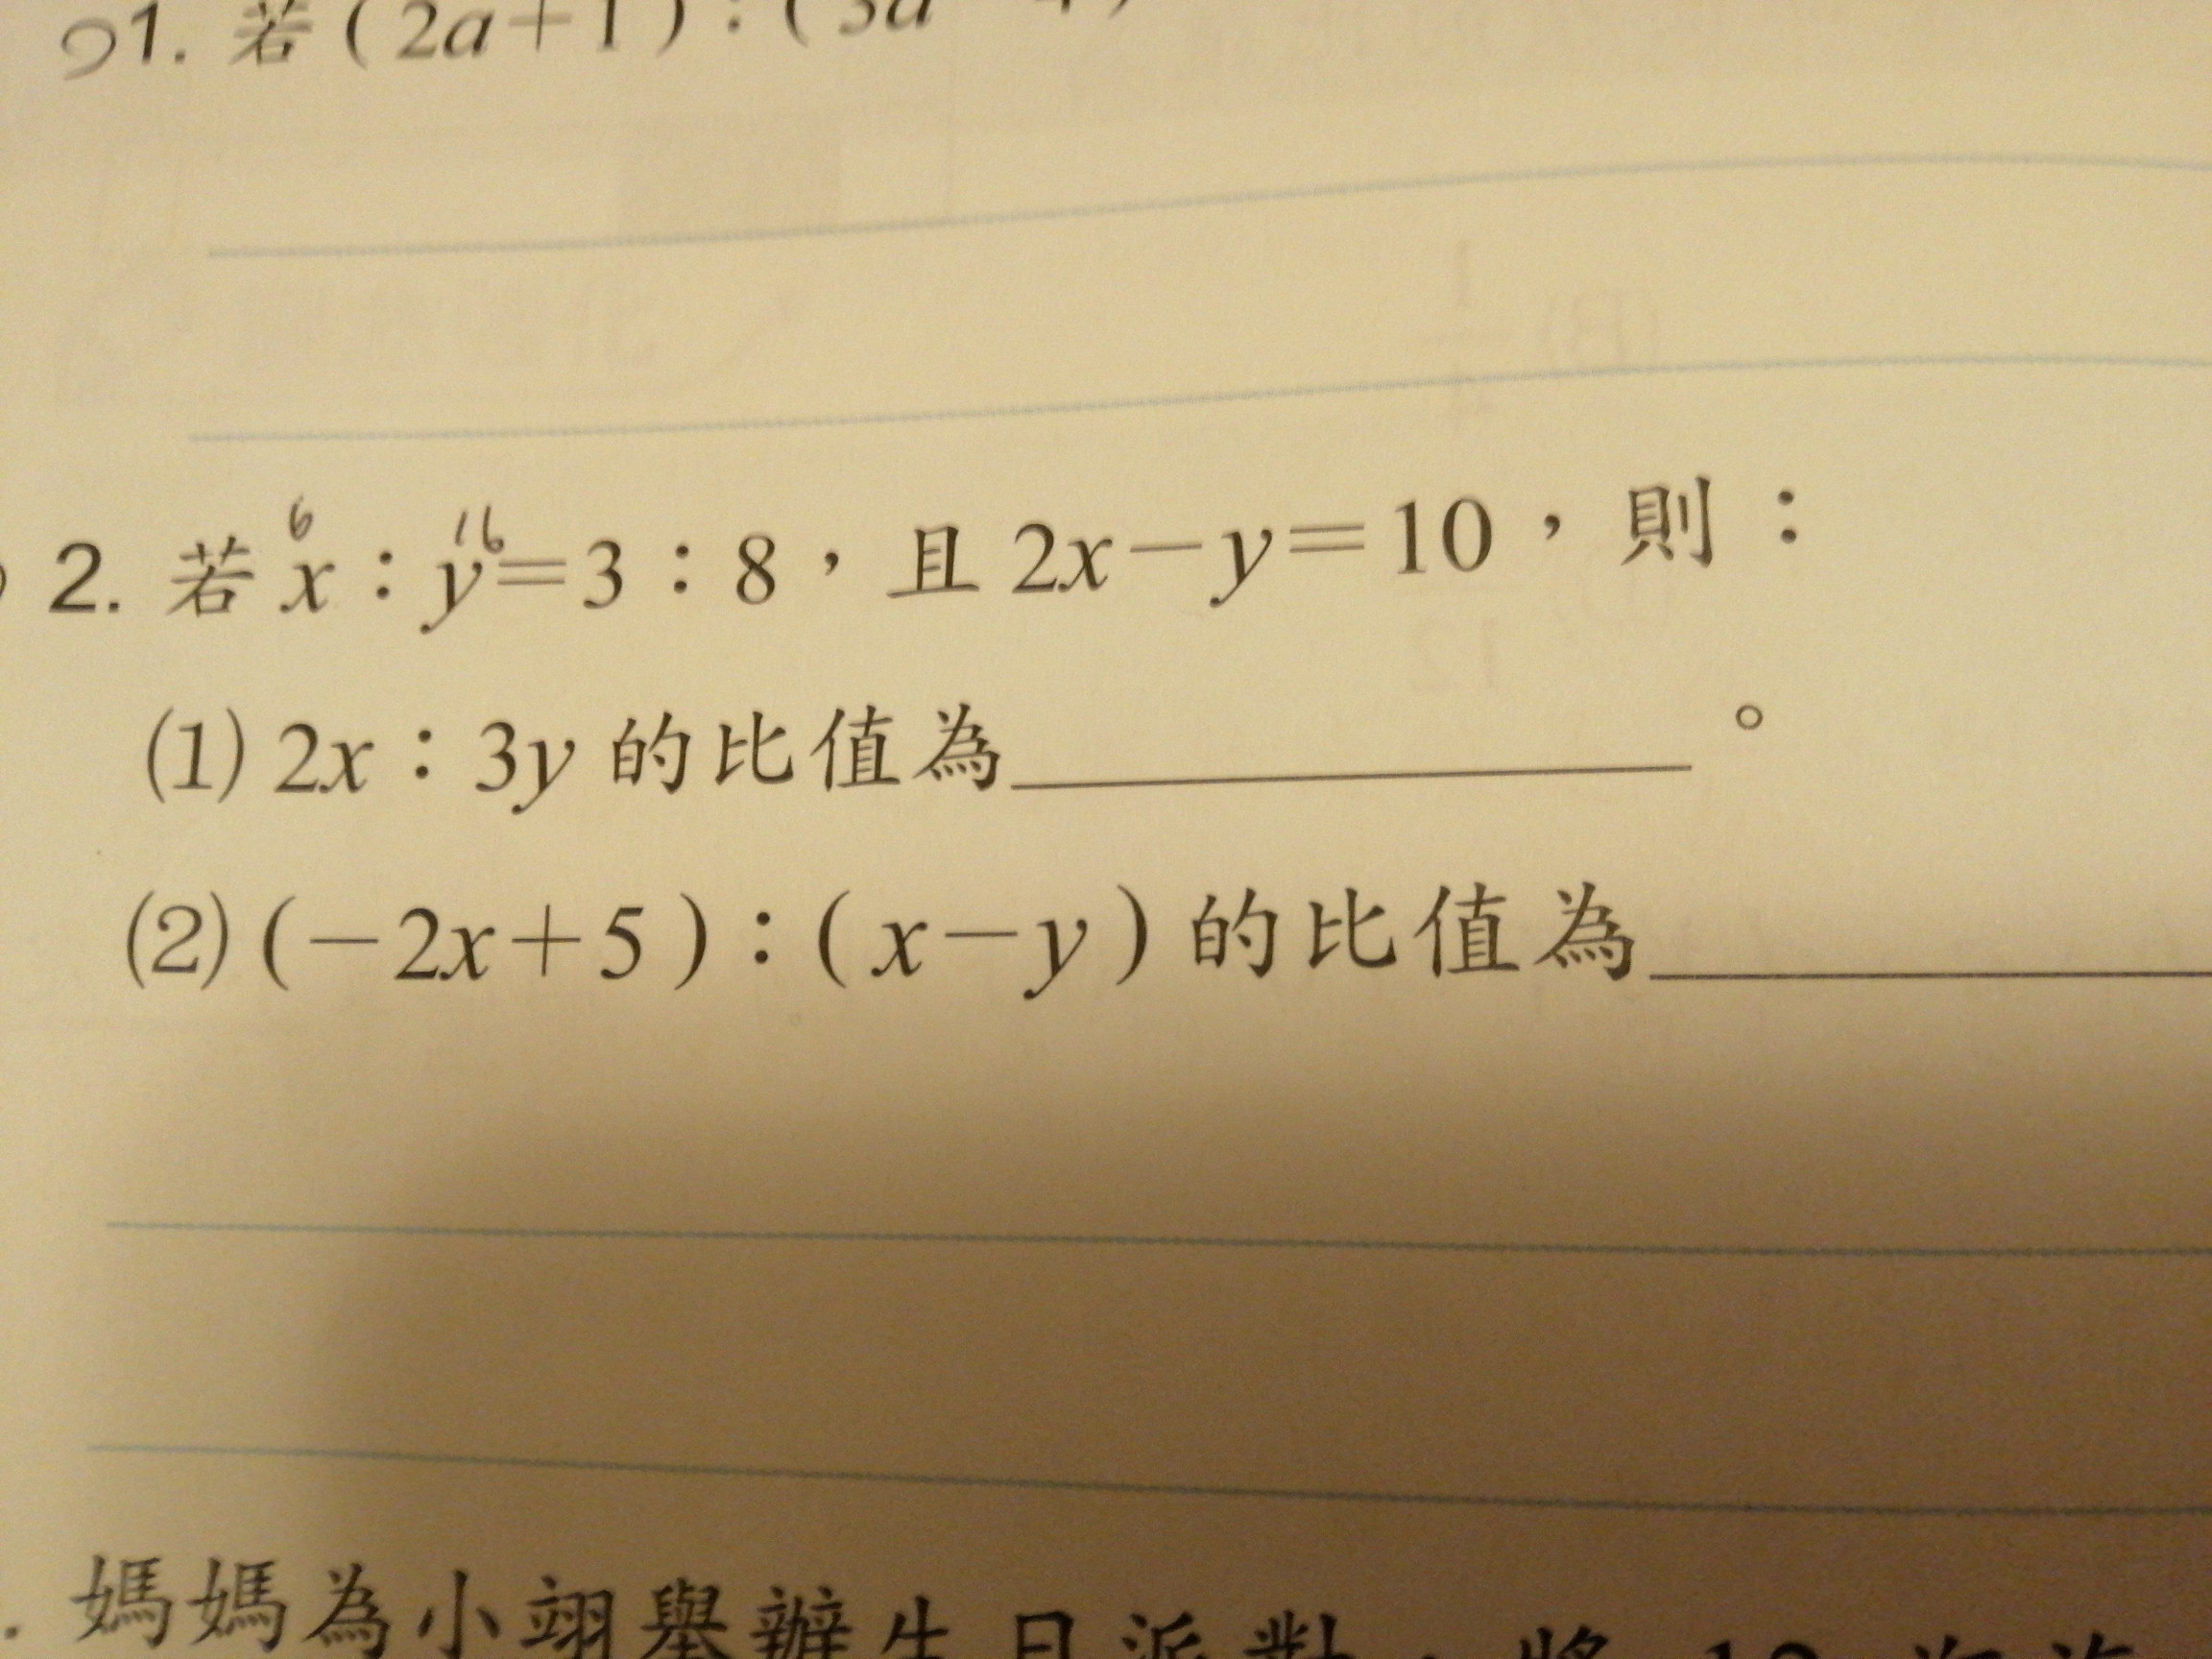 1. 若(2a+1):(3a
6 16
2. 若 x:y=3:8,且 2x-y=10,則:
(1) 2x:3y 的比值為。
(2) (-2x+5):(x-y) 的比值為
媽媽為小翊舉辦生日派對,將 12